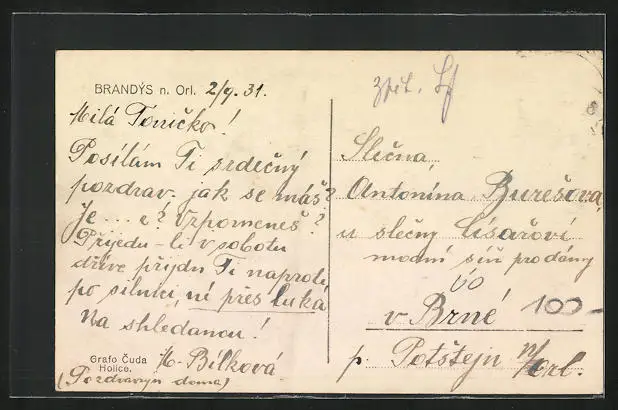 BRANDÝS n. Orl. 2/9. 31.
Milá Toničko!
Posílám Ti srdečný
pozdrav. jak se máš?
Je ... e? Vzpomeneš?
Přijedu-li v sobotu
dříve přijdu Ti naproti
po silnici, ní přes luka
Na shledanou!
M. Bílková
(Pozdravuji doma)
Grafo Čuda
Holice.
zpět.
Slečna
Antonína Burešová,
u slečny Císařoví
modní síň prodány
v Brné
100-
p. Potštejn n/Orl.